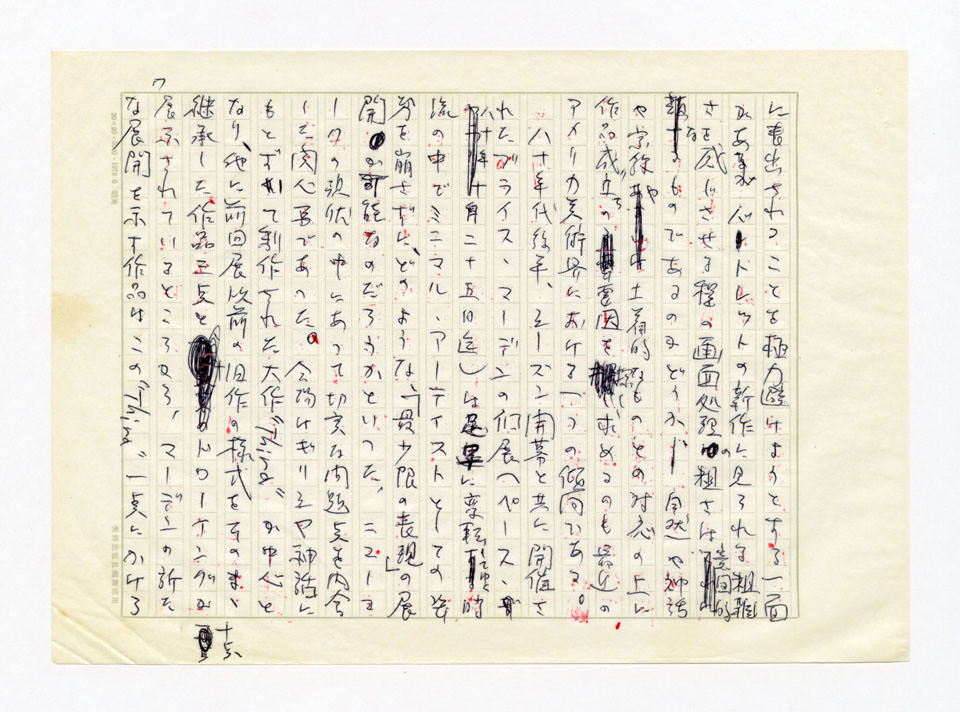 に表出されることを極力避けようとする一面
があるが、バートレットの新作に見られる粗雑
さを感じさせる程の画面処理の粗さは意図的
なものであるのかどうか。自然や神話
や宗教や土着的なものとの対応の上に
作品成立の要因を求めるのも最近の
アメリカ美術界における一つの傾向である。
八十年代後半、シーズン開幕と共に開催さ
れたブライス・マーデンの個展(ペース、
十月二十五日迄)は変転してゆく時
流の中でミニマル・アーティストとしての姿
勢を崩さずに、どのような「最少限の表現」の展
開が可能なのだろうかといった、ニューヨ
ークの現状の中にあって切実な問題点を内含
した関心事であった。会場はギリシャ神話に
もとずいて制作された大作"Thira"が中心と
なり、他に前回展以前の旧作の様式をそのまゝ
継承した作品三点と十点のドローイングが
展示されているところから、マーデンの新た
な展開を示す作品はこの"Thira"一点にかける
7